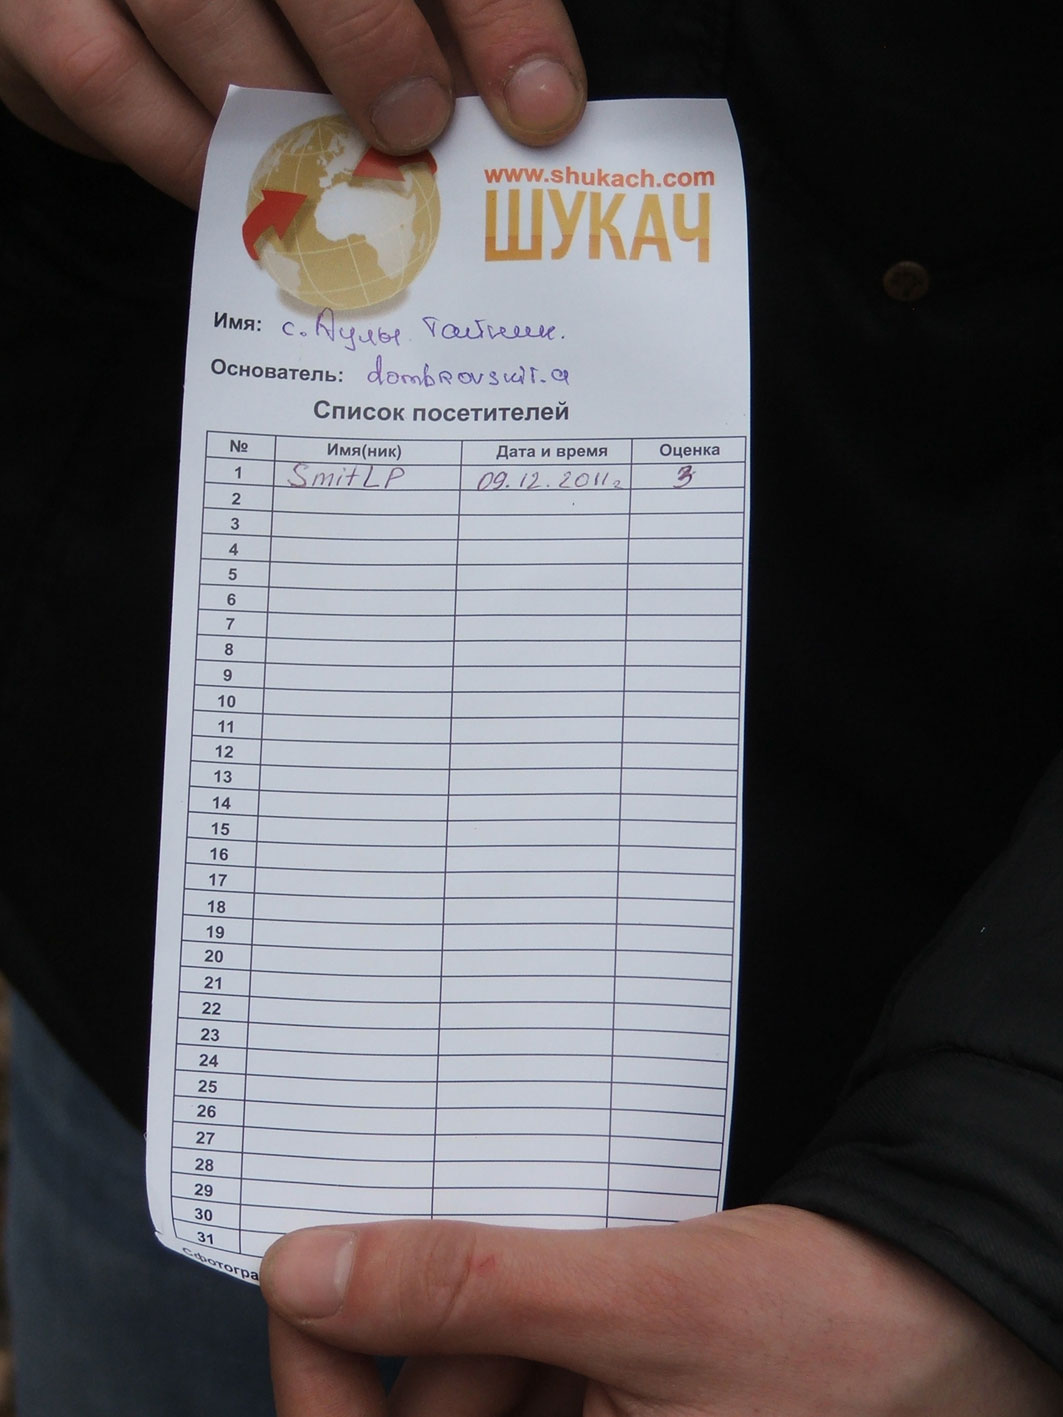 www.shukach.com
ШУКАЧ
Имя: с. Аулы. Тайник.
Основатель: dombrovskii.a
Список посетителей
№ Имя(ник) Дата и время Оценка
1 SmitLP 09.12.2011г 3
2
3
4
5
6
7
8
9
10
11
12
13
14
15
16
17
18
19
20
21
22
23
24
25
26
27
28
29
30
31
Сфотогра